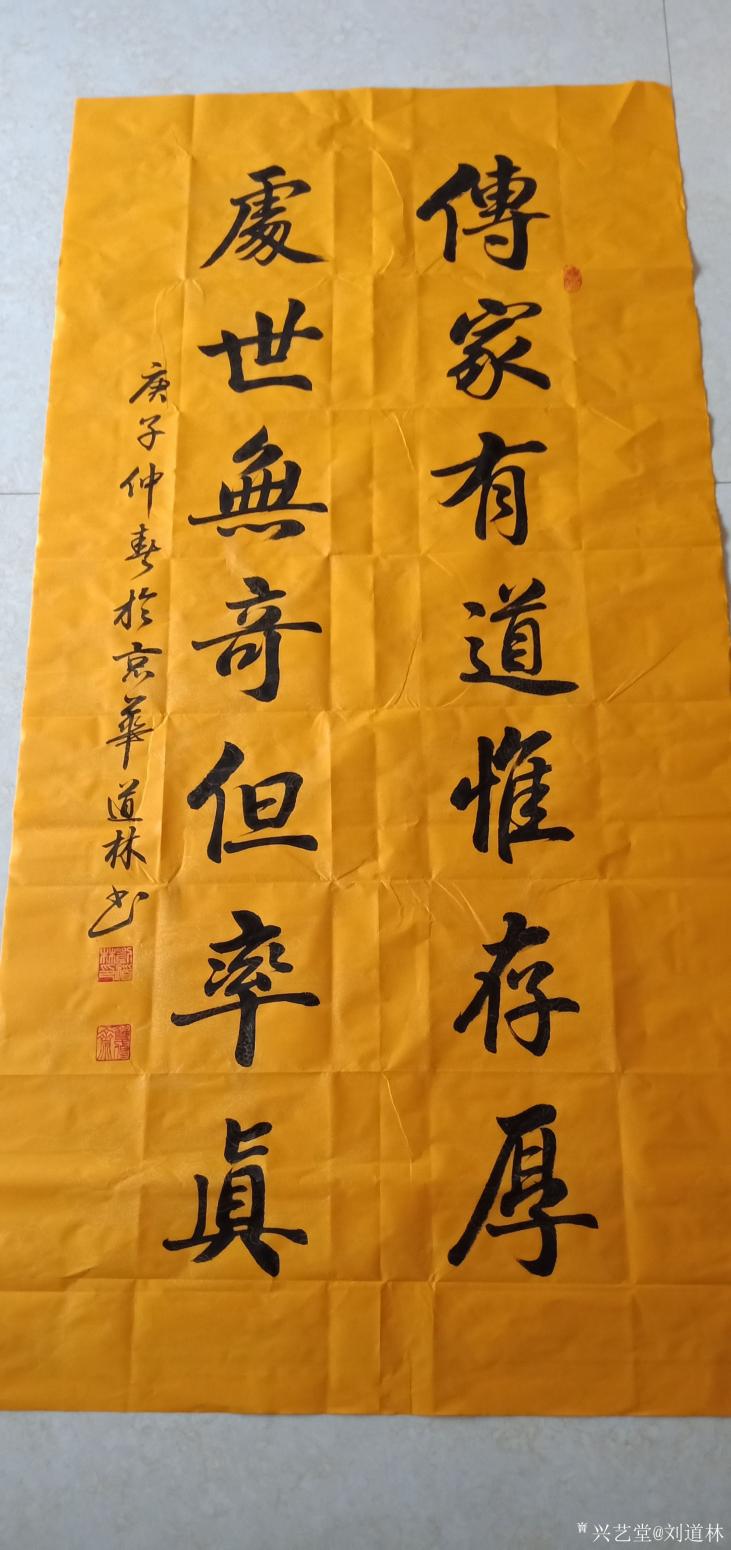 傳家有道惟存厚
處世無奇但率眞
庚子仲春於京華道林书
兴艺堂@刘道林